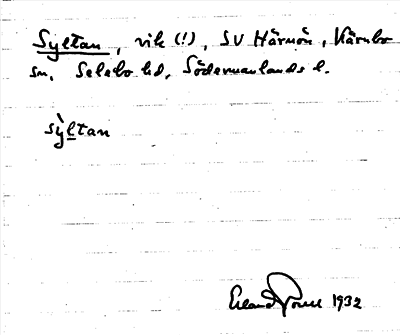 Syltan, vik (!), SV Härnön, Kärnbo
sn, Selebo hd, Södermanlands l.
sỳltan
Erland Rosell 1932